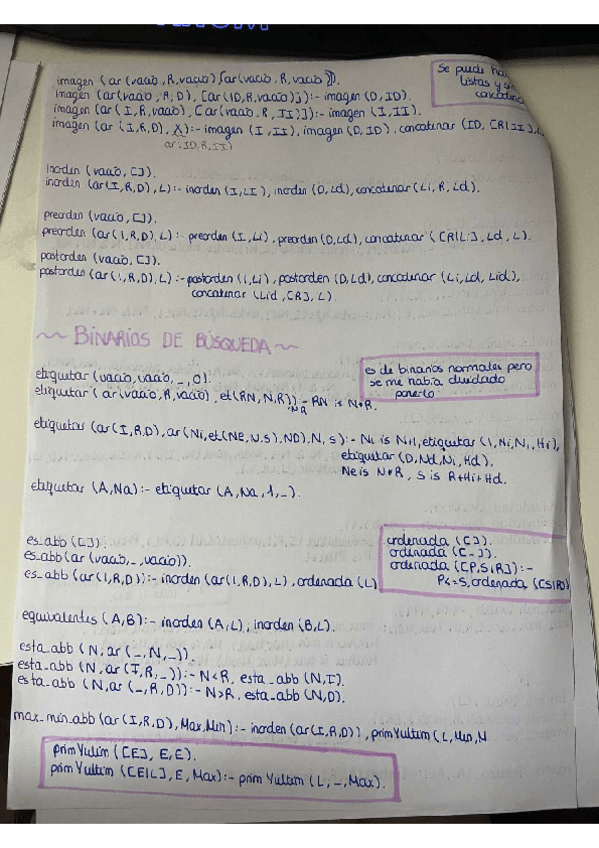 Se puede ha
listas y s
concatena
imagen (ar(vacío,R,vacío),[ar(vacío,R,vacío)]).
imagen (ar(vacío,R,D), [ar(ID,R,vacío)]):- imagen (D,ID).
imagen (ar(I,R,vacío), [ar(vacío,R,II)]):- imagen (I,II).
imagen (ar(I,R,D), X):- imagen (I,II), imagen (D,ID), concatenar (ID,[R|II],
ar(ID,R,II)
inorden (vacío,[]).
inorden (ar(I,R,D),L):- inorden (I,LI), inorden (D,Ld), concatenar (Li,R,Ld).
preorden (vacío,[]).
preorden (ar(I,R,D),L):- preorden (I,Li), preorden (D,Ld), concatenar ([R|Li],Ld,L).
postorden (vacío,[]).
postorden (ar(I,R,D),L):- postorden (I,Li), postorden (D,Ld), concadenar (Li,Ld,Lid),
concatenar (Lid,[R],L).
~~ BINARIOS DE BÚSQUEDA ~~
es de binarios normales pero
se me había olvidado
ponerlo
etiquetar (vacío,vacío,_,0).
etiquetar (ar(vacío,R,vacío), et(RN,N,R)):- RN is N*R.
N,R
etiquetar (ar(I,R,D),ar(Ni,et(Ne,N,S),ND),N,S):- N1 is N+1, etiquetar (I,Ni,N1,Hi),
etiquetar (D,Nd,N1,Hd),
Ne is N*R, S is R+Hi+Hd.
etiquetar (A,Na):- etiquetar (A,Na,1,_).
es_abb ([]).
es_abb(ar(vacío,_,vacío)).
es_abb (ar(I,R,D)):- inorden (ar(I,R,D),L), ordenada (L)
ordenada ([]).
ordenada ([_]).
ordenada ([P,S|R]):-
P<=S, ordenada ([S|R])
equivalentes (A,B):- inorden (A,L), inorden (B,L).
esta_abb (N,ar(_,N,_)).
esta_abb (N,ar(I,R,_)):- N<R, esta_abb (N,I).
esta_abb (N,ar(_,R,D)):- N>R, esta_abb (N,D).
max_min_abb (ar(I,R,D),Max,Min):- inorden (ar(I,R,D)), primYultim (L,Min,M
primYultim ([E],E,E).
primYultim ([E|L],E,Max):- primYultim (L,_,Max).